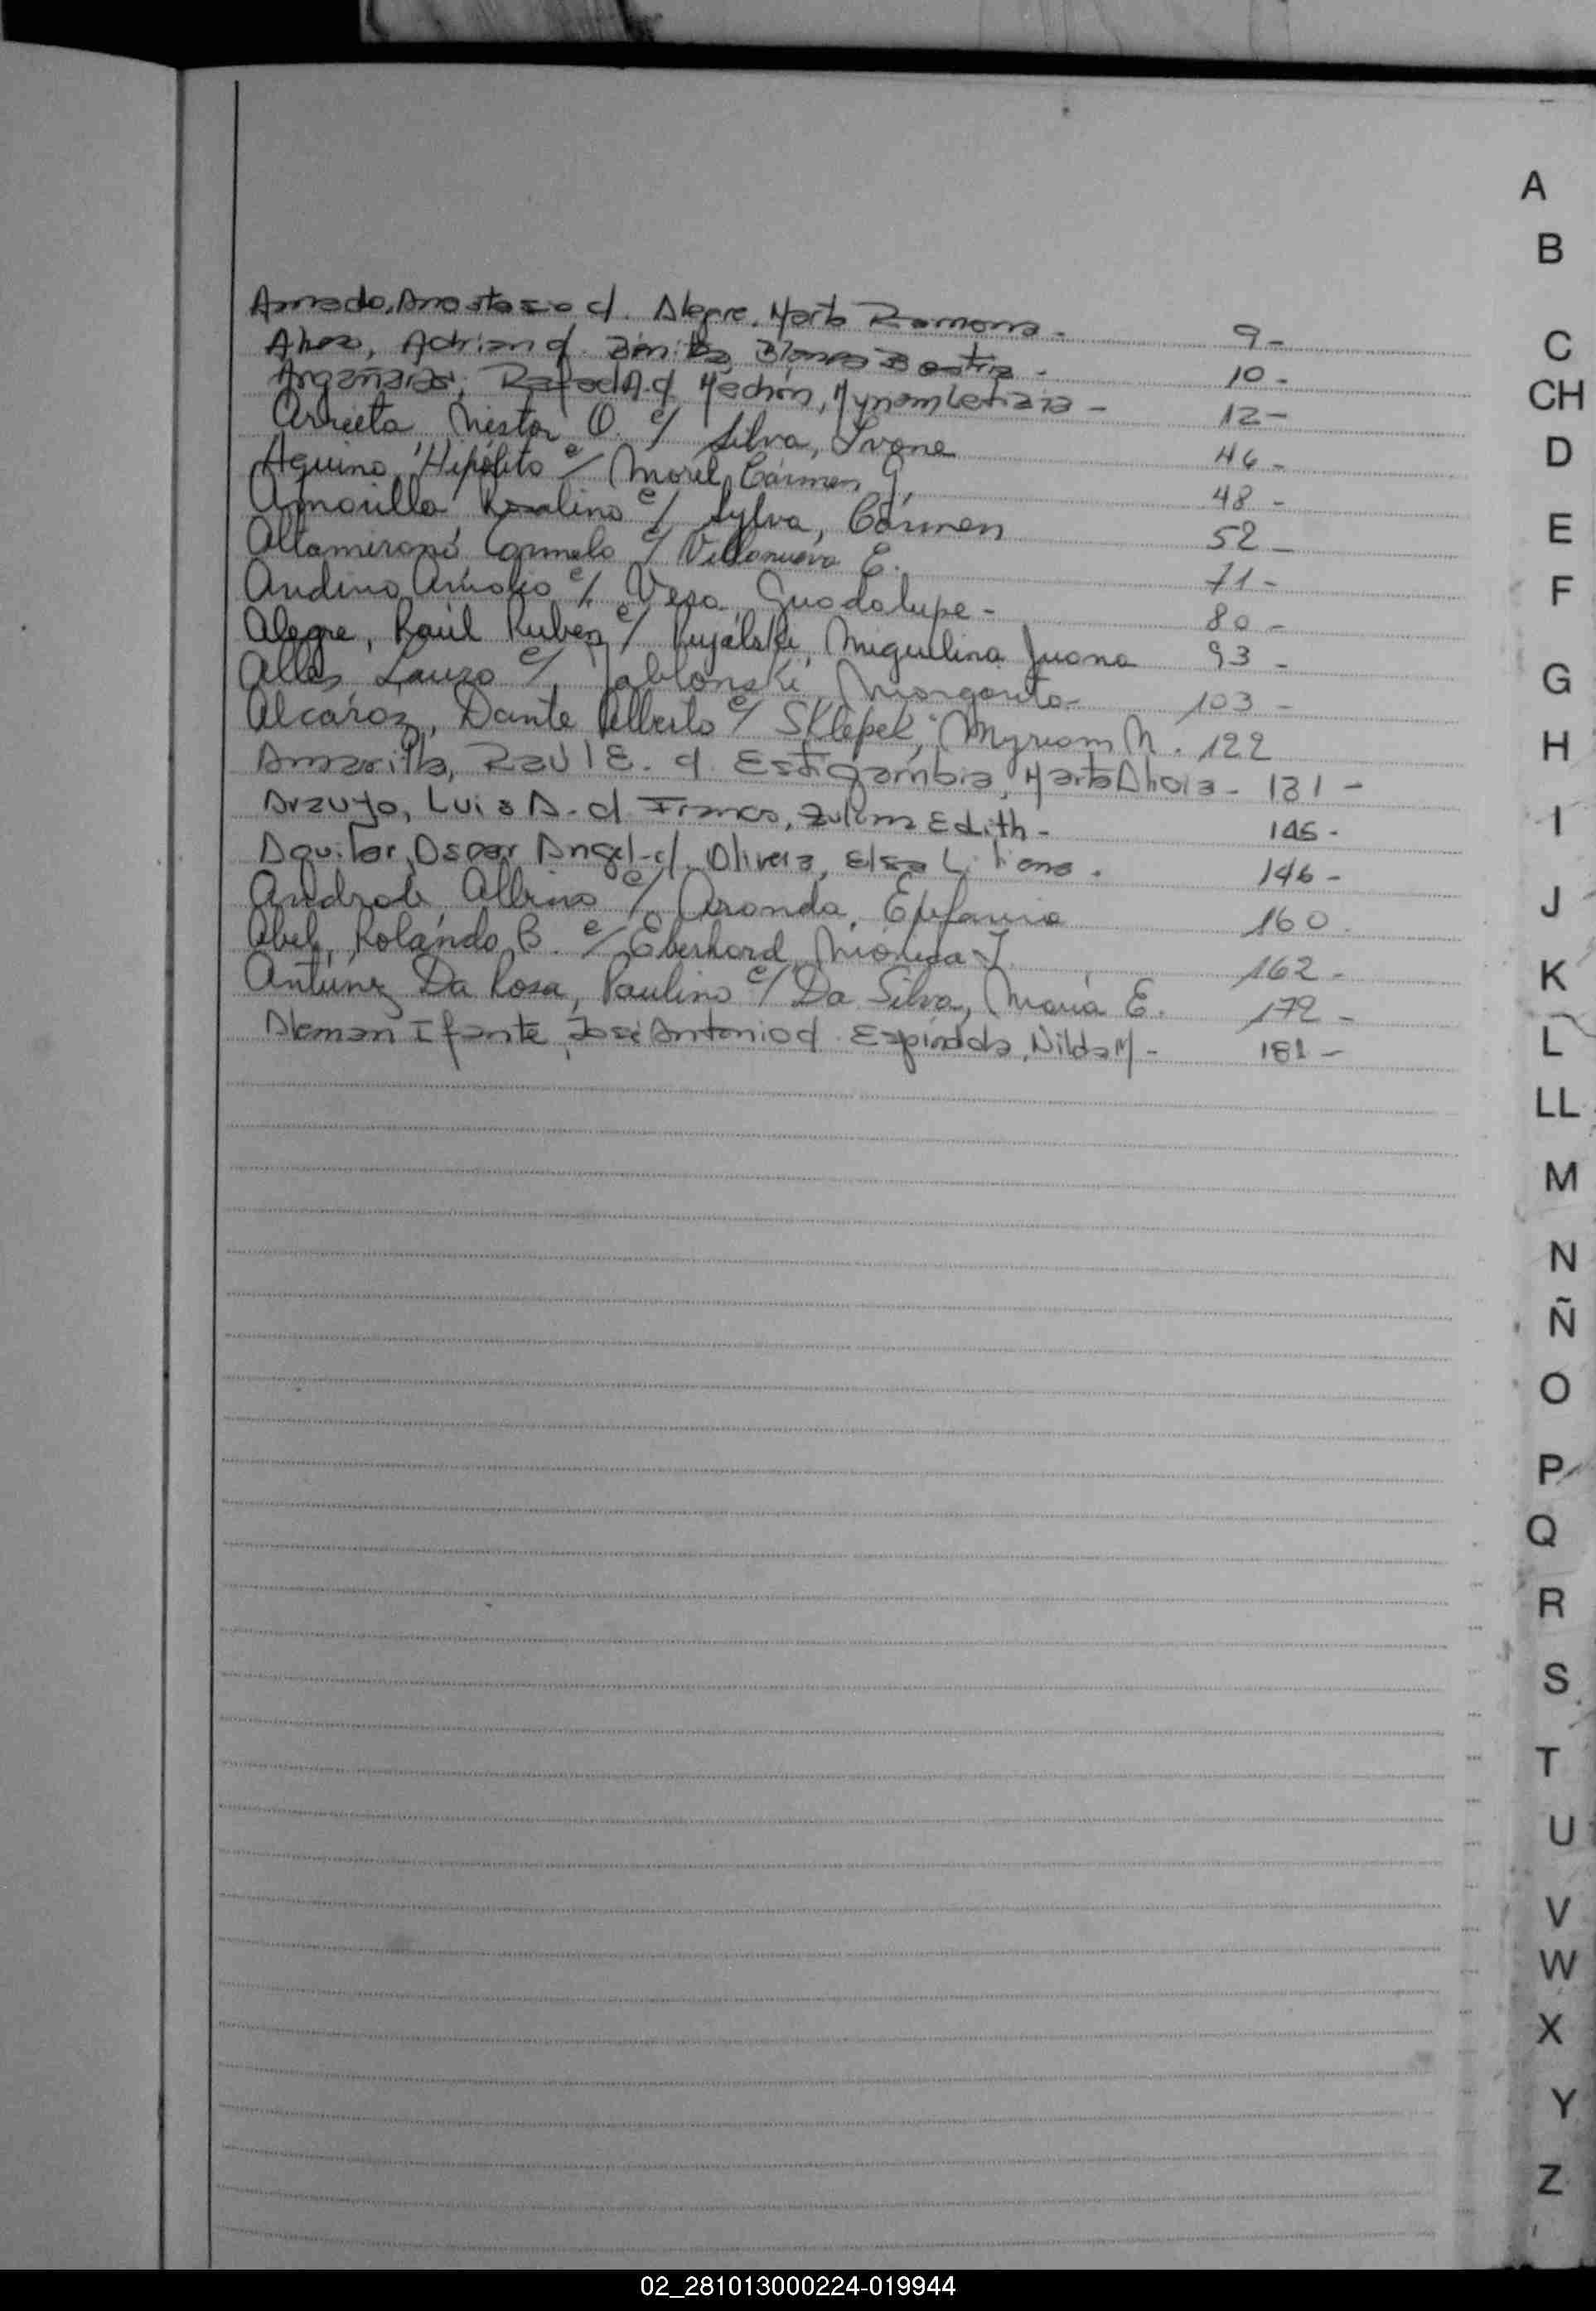 Amado, Anastacio c/. Alegre, Marta Ramona - 9 -
Adrian c/. Benitez Blanca Beatriz - 10 -
Argañaras, Rafael A. c/ Mechón, Myriam Leticia - 12 -
Arrieta Néstor O. c/ Silva, Ivone 46 -
Aquino, Hipólito c/ Morel, Cármen G. 48 -
Amarilla Rosalino c/ Sylva, Cármen 52 -
Altamirano, Carmelo c/ Villanueva E. 71 -
Andino, c/. Vega, Guadalupe - 80 -
Alegre, Raúl Ruben c/ Miguelina Juana 93 -
Lauro c/. Jablonski, Margarita - 103 -
Alcaroz, Dante Alberto c/ Sklepek, Myriam N. 122
Amarilla, Raul E. c/ Estigarribia, Marta - 131 -
Araujo, Luis A. c/ Franco, Zulema Edith - 145 -
Aguilar, Oscar Angel - c/. Olivera, Elsa Liliana . 146 -
Andrade, Albino c/ Aranda, Epifania 160.
Abel, Rolando B. c/ Eberhard, J. 162 -
Antúnez Da Rosa, Paulino c/ Da Silva, María E. 172 -
Aleman Ifante, José Antonio c/. Espíndola, Nilda M - 181 -
A
B
C
CH
D
E
F
G
H
I
J
K
L
LL
M
N
Ñ
O
P
Q
R
S
T
U
V
W
X
Y
Z
02_281013000224-019944